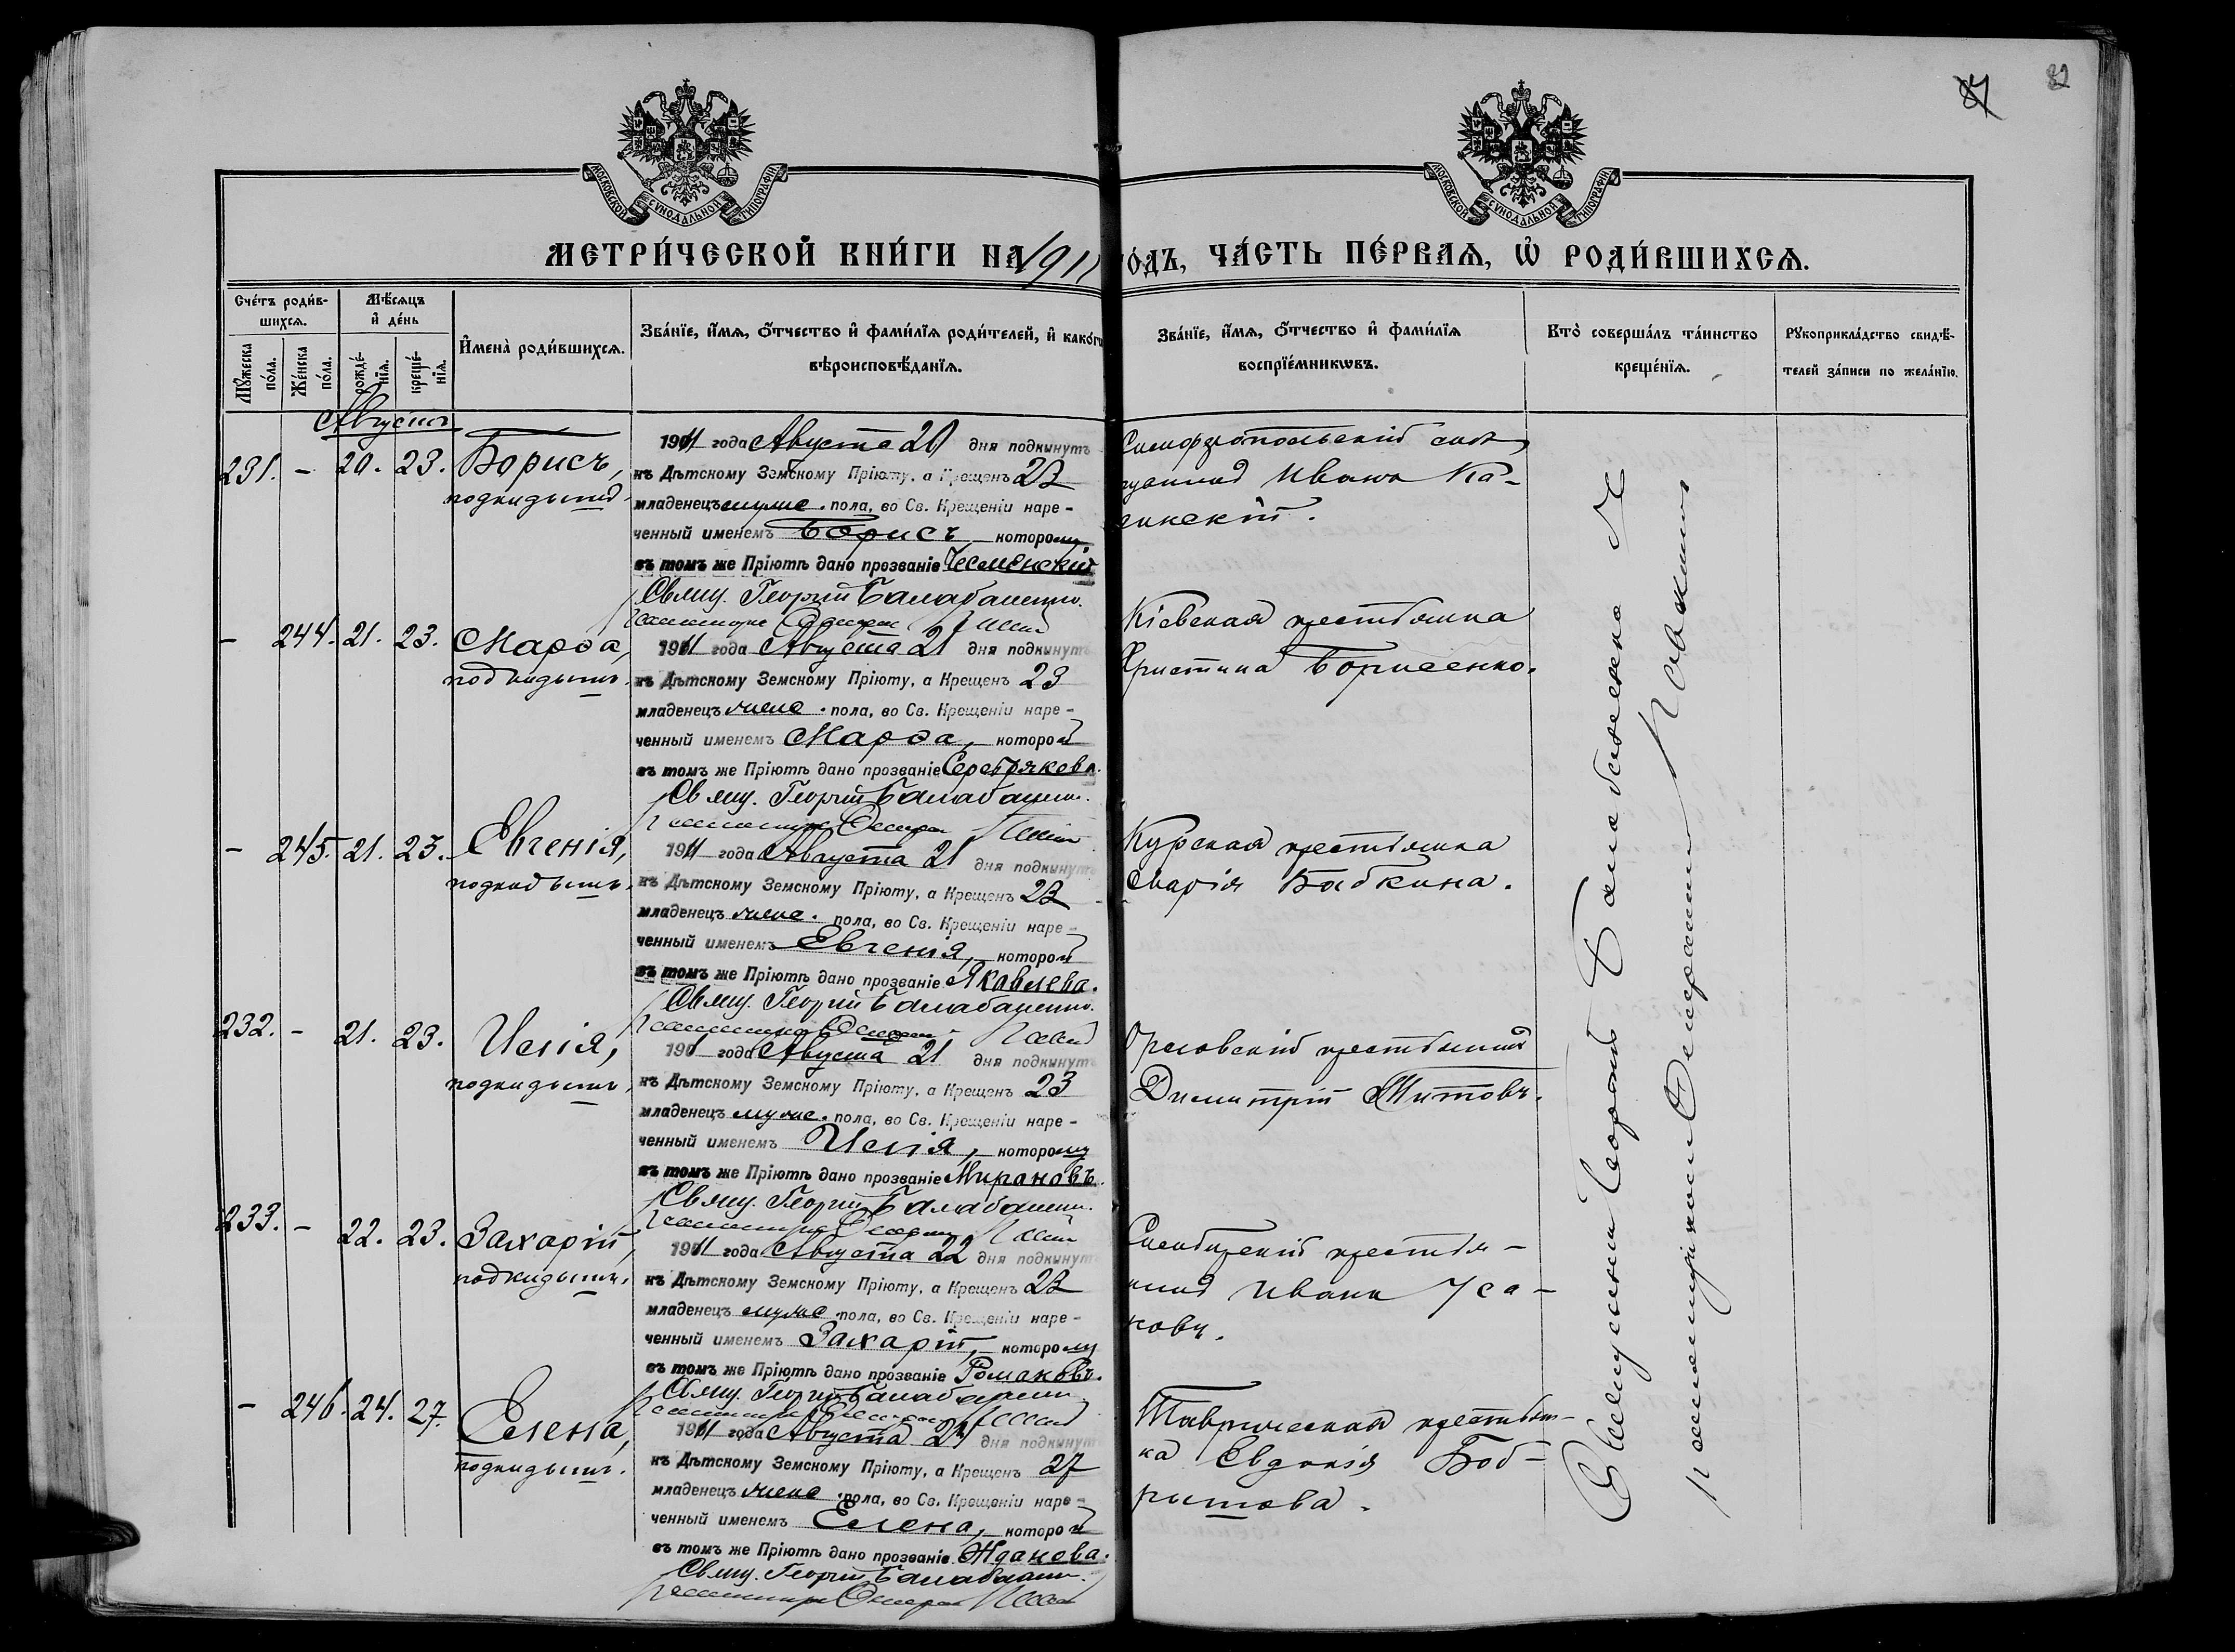 82
МОСКОВСКОЙ СѴНОДАЛЬНОЙ ТИПОГРАФІИ
МОСКОВСКОЙ СѴНОДАЛЬНОЙ ТИПОГРАФІИ
МЕТРИ́ЧЕСКОЙ КНИ́ГИ НА 1911 ГО́ДЪ, ЧА́СТЬ ПЕ́РВАѦ, Ѡ҆ РОДИ́ВШИХСѦ.
Сче́тъ роди́в-
шихсѧ.
Мѣ́сѧцъ
и҆ де́нь
Мꙋ́жеска
по́ла.
Же́нска
по́ла.
рожде́-
нїѧ.
креще́-
нїѧ.
И҆мена̀ роди́вшихсѧ.
Зва́нїе, и҆́мѧ, ѻ҆́тчество и҆ фами́лїѧ роди́телей, и҆ како́гѡ
вѣроисповѣ́данїѧ.
Зва́нїе, и҆́мѧ, ѻ҆́тчество и҆ фами́лїѧ
воспрїе́мникѡвъ.
Кто̀ соверша́лъ та́инство
креще́нїѧ.
Рꙋкоприкла́дство свидѣ́-
телей за́писи по жела́нїю.
Августъ
231. – 20. 23. Борисъ,
подкидышъ
1911 года Августа 20 дня подкинутъ
къ Дѣтскому Земскому Пріюту, а Крещенъ 23
младенецъ муже. пола, во Св. Крещеніи наре-
ченный именемъ Борисъ которому
въ томъ же Пріютѣ дано прозваніе Чесменскій
Свящ. Георгій Балабаненко.
Симферопольскій
Иванъ Ка-
– 244. 21. 23. Марѳа,
подкидышъ.
1911 года Августа 21 дня подкинутъ
къ Дѣтскому Земскому Пріюту, а Крещенъ 23
младенецъ жене. пола, во Св. Крещеніи наре-
ченный именемъ Марѳа, которой
въ томъ же Пріютѣ дано прозваніе Серебрякова.
Свящ. Георгій Балабаненко.
Кіевская крестьянка
Христина Борисенко.
– 245. 21. 23. Евгенія,
подкидышъ.
1911 года Августа 21 дня подкинутъ
къ Дѣтскому Земскому Пріюту, а Крещенъ 23
младенецъ жене. пола, во Св. Крещеніи наре-
ченный именемъ Евгенія, которой
въ томъ же Пріютѣ дано прозваніе Яковлева.
Свящ. Георгій Балабаненко.
Курская крестьянка
Марія Бабкина.
232. – 21. 23. Илія,
подкидышъ.
1911 года Августа 21 дня подкинутъ
къ Дѣтскому Земскому Пріюту, а Крещенъ 23
младенецъ муже. пола, во Св. Крещеніи наре-
ченный именемъ Илія, которому
въ томъ же Пріютѣ дано прозваніе Мироновъ.
Свящ. Георгій Балабаненко.
Орловскій крестьянинъ
Димитрій Титовъ.
233. – 22. 23. Захарій,
подкидышъ.
1911 года Августа 22 дня подкинутъ
къ Дѣтскому Земскому Пріюту, а Крещенъ 23
младенецъ муже. пола, во Св. Крещеніи наре-
ченный именемъ Захарій, которому
въ томъ же Пріютѣ дано прозваніе Ромаковъ.
Свящ. Георгій Балабаненко
Симбирскій крестья-
нинъ Иванъ Уса-
ковъ.
– 246. 24. 27. Елена,
подкидышъ.
1911 года Августа 24 дня подкинутъ
къ Дѣтскому Земскому Пріюту, а Крещенъ 27
младенецъ жене. пола, во Св. Крещеніи наре-
ченный именемъ Елена, которой
въ томъ же Пріютѣ дано прозваніе Жданова.
Свящ. Георгій Балабаненко.
Таврическая крестьян-
ка Евдокія Боб-
рышова.
Священникъ Георгій Балабаненко